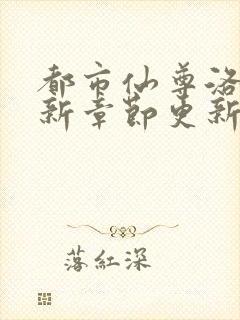 都市仙尊洛
新章節更新
落紅深